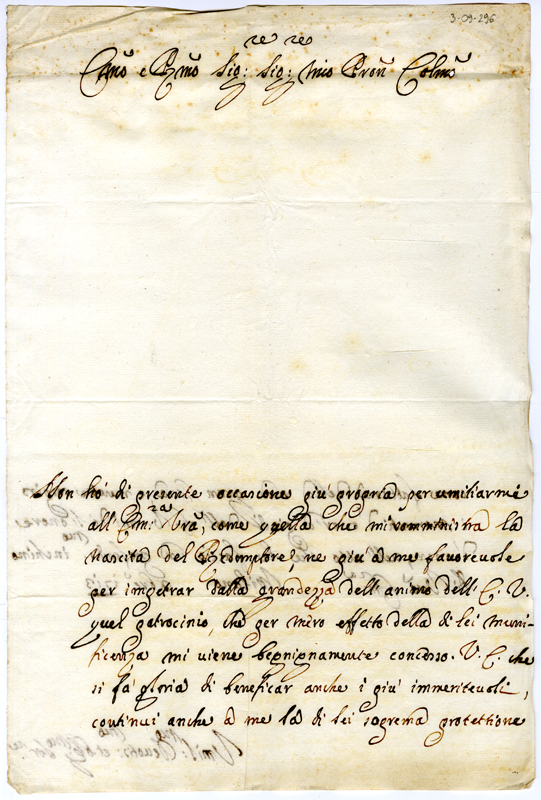 3-09-296
re re
Emo e Rmo Sig: Sig: mio Pron Colmo
Non hò di presente occasione più propria per umiliarmi
all' Em:za Vra, come quella che mi somministra la
Nascita del Redentore, ne più à me favorevole
per impetrar dalla grandezza dell' animo dell' E. V.
quel patrocinio, che per mero effetto della di lei muni-
ficenza mi viene benignamente concesso. V. E. che
si fà gloria di beneficar anche i più immeritevoli,
continui anche à me la di lei soprema protettione